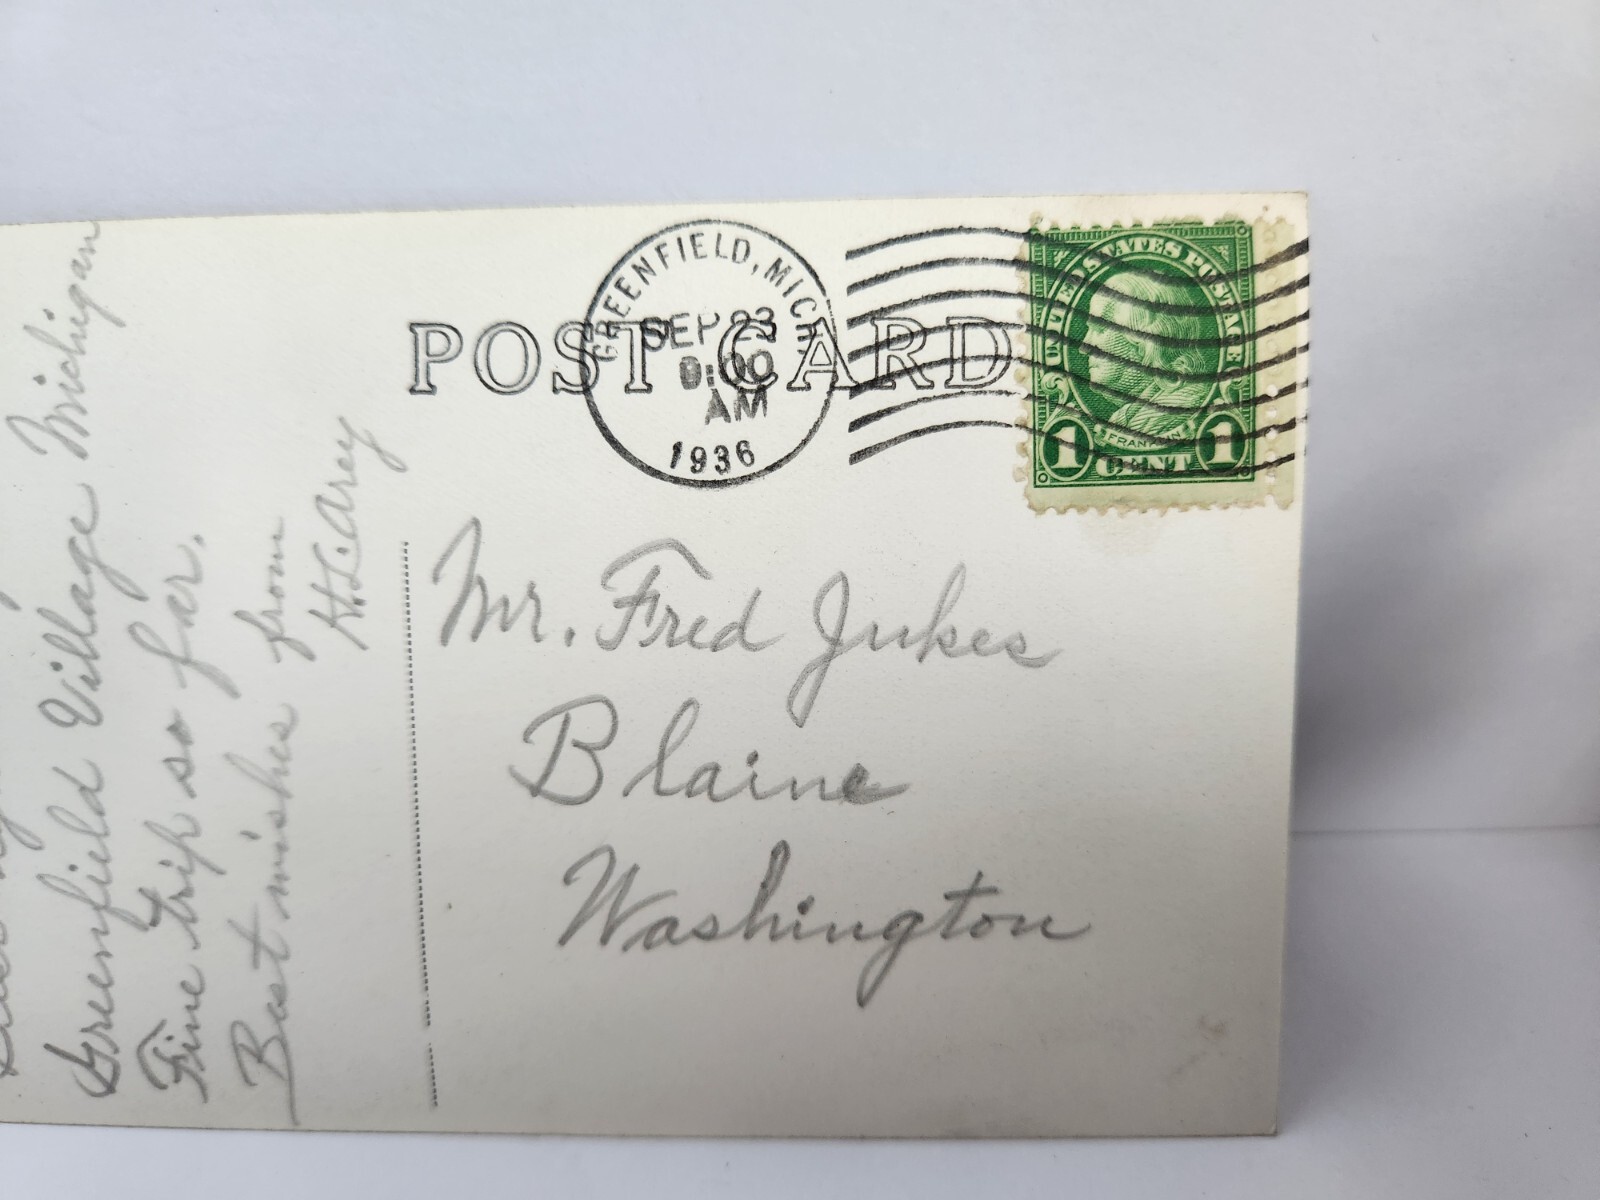 POST CARD
GREENFIELD, MICH
SEP 23
AM
1936
UNITED STATES POSTAGE
FRANKLIN
1 CENT 1
Mr. Fred Jukes
Blaine
Washington
Greenfield Village Michigan
Fine trip so far.
Best wishes from